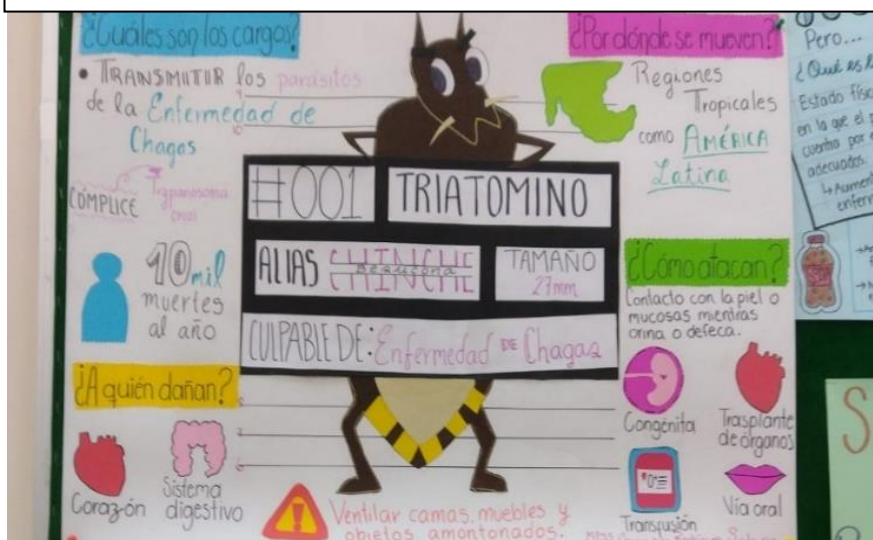 ¿Cuáles son los cargos?
• TRANSMITIR los parásitos
de la Enfermedad de
Chagas
CÓMPLICE Trypanosoma
cruzi
10 mil
muertes
al año
¿A quién dañan?
Corazón
Sistema
digestivo
#001
TRIATOMINO
ALIAS CHINCHE
Besucona
TAMAÑO
27mm
CULPABLE DE: Enfermedad DE Chagas
Ventilar camas, muebles y
objetos amontonados.
¿Por dónde se mueven?
Regiones
Tropicales
como AMÉRICA
Latina
¿Cómo atacan?
Contacto con la piel o
mucosas mientras
orina o defeca.
Congénita
Trasplante
de órganos
Transfusión
Vía oral
Pero...
¿Qué es l
Estado físic
en la que el p
cuentra por e
adecuados.
Aument
enferm
S